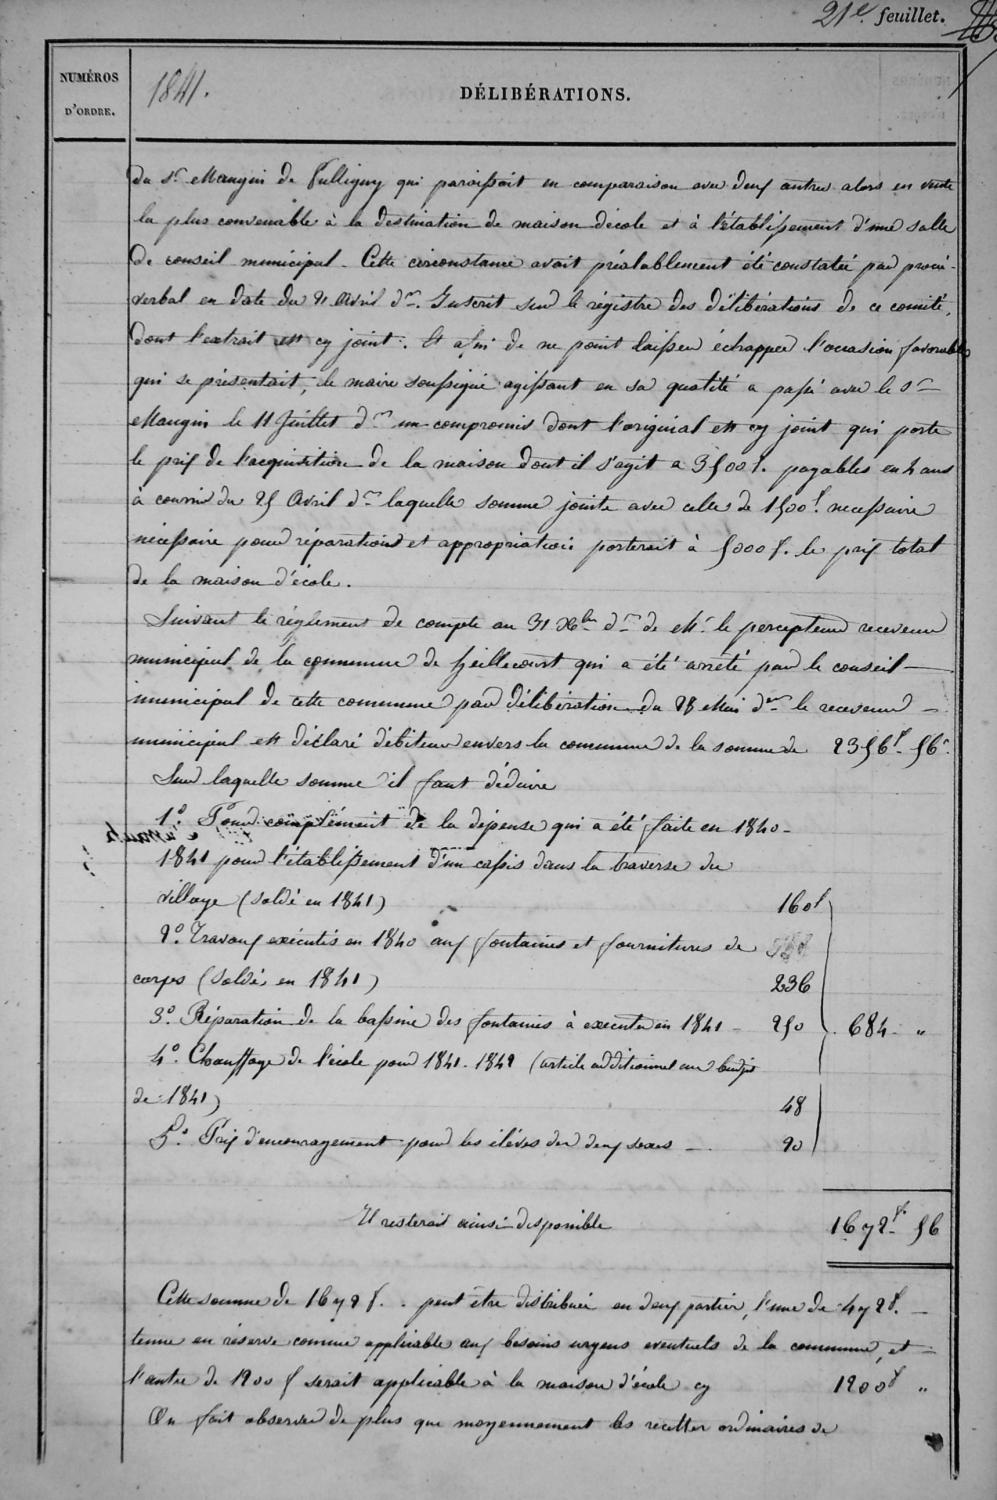 21e feuillet.
NUMÉROS
D'ORDRE.
1841.
DÉLIBÉRATIONS.
du Sr. Mangin de Pulligny qui paroissoit en comparaison avec deux autres alors en vente
la plus convenable à la destination de maison d'école et à l'établissement d'une salle
de conseil municipal. Cette circonstance avait préalablement été constatée par procès-
verbal en date du 21 Avril dr. Inscrit sur le régistre des délibérations de ce comité,
dont l'extrait est cy joint. Et afin de ne point laisser échapper l'occasion favorable
qui se présentait, le maire soussigné agissant en sa qualité a passé avec le Sr
Mangin le 11 Juillet dr un compromis dont l'original est cy joint qui porte
le prix de l'acquisition de la maison dont il s'agit a 3500f. payables en 4 ans
à courir du 25 Avril dr laquelle somme jointe avec celle de 1500f. necessaire
nécessaire pour réparations et appropriation porterait à 5000f. le prix total
de la maison d'école.
Suivant le réglement de compte au 31 Xbre dr de Mr. le percepteur receveur
municipal de la commune de heillecourt qui a été arrêté par le conseil
municipal de cette commune par délibération du 28 Mai dr le receveur
municipal est déclaré débiteur envers la commune de la somme de 2356f. 56c.
Sur laquelle somme il faut déduire
1o. Pour complément de la dépense qui a été faite en 1840-
1841 pour l'établissement d'un cassis dans la traverse du
village (soldé en 1841) 160f
2o. Travaux exécutés en 1840 aux fontaines et fournitures de
corps (soldés en 1841) 236
3o. Réparation de la bassine des fontaines à exécuter en 1841 - 250 . 684 - "
4o. Chauffage de l'école pour 1841-1842 (article additionnel au budget
de 1841) 48
5o. Prix d'encouragement pour les élèves des deux sexes - 90
Il resterait ainsi disponible 1672f. 56
Cette somme de 1672f. peut être distribuée en deux parties, l'une de 472f.
tenue en réserve comme applicable aux besoins urgens eventuels de la commune, et
l'autre de 1200f serait applicable à la maison d'école cy 1200f "
On fait observer de plus que moyennement les recettes ordinaires de